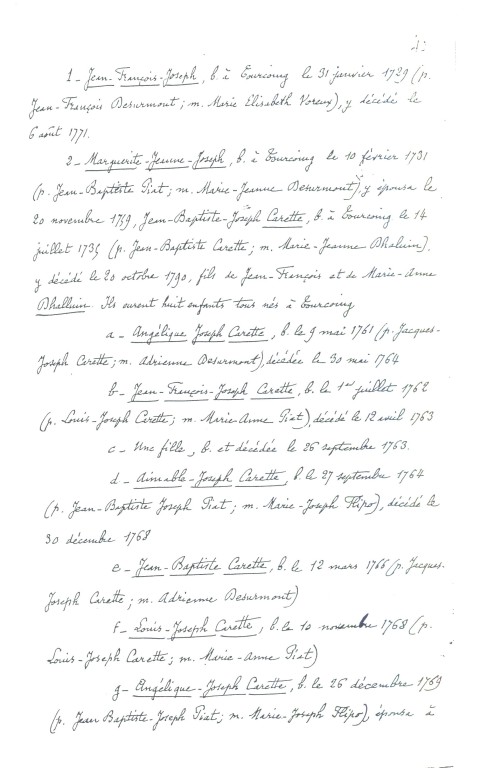 4.
1 - Jean-François-Joseph, b. à Tourcoing le 31 janvier 1729 (p.
Jean-François Desurmont ; m. Marie Elisabeth Voreux), y décédé le
6 août 1771.
2 - Marguerite-Jeanne-Joseph, b. à Tourcoing le 10 février 1731
(p. Jean-Baptiste Piat ; m. Marie-Jeanne Desurmont), y épousa le
20 novembre 1759, Jean-Baptiste-Joseph Carette, b. à Tourcoing le 14
juillet 1735 (p. Jean-Baptiste Carette ; m. Marie-Jeanne Dhaluin),
y décédé le 20 octobre 1790, fils de Jean-François et de Marie-Anne
Dhalluin. Ils eurent huit enfants tous nés à Tourcoing
a - Angélique Joseph Carette, b. le 9 mai 1761 (p. Jacques-
Joseph Carette ; m. Adrienne Desurmont), décédée le 30 mai 1764
b - Jean-François-Joseph Carette, b. le 1er juillet 1762
(p. Louis-Joseph Carette ; m. Marie-Anne Piat), décédé le 12 avril 1763
c - Une fille, b. et décédée le 26 septembre 1763.
d - Aimable-Joseph Carette, b. le 27 septembre 1764
(p. Jean-Baptiste Joseph Piat ; m. Marie-Joseph Flipo), décédé le
30 décembre 1768
e - Jean-Baptiste Carette, b. le 12 mars 1766 (p. Jacques-
Joseph Carette ; m. Adrienne Desurmont)
f - Louis-Joseph Carette, b. le 10 novembre 1768 (p.
Louis-Joseph Carette ; m. Marie-Anne Piat)
g - Angélique-Joseph Carette, b. le 26 décembre 1769
(p. Jean Baptiste-Joseph Piat ; m. Marie-Joseph Flipo), épousa à